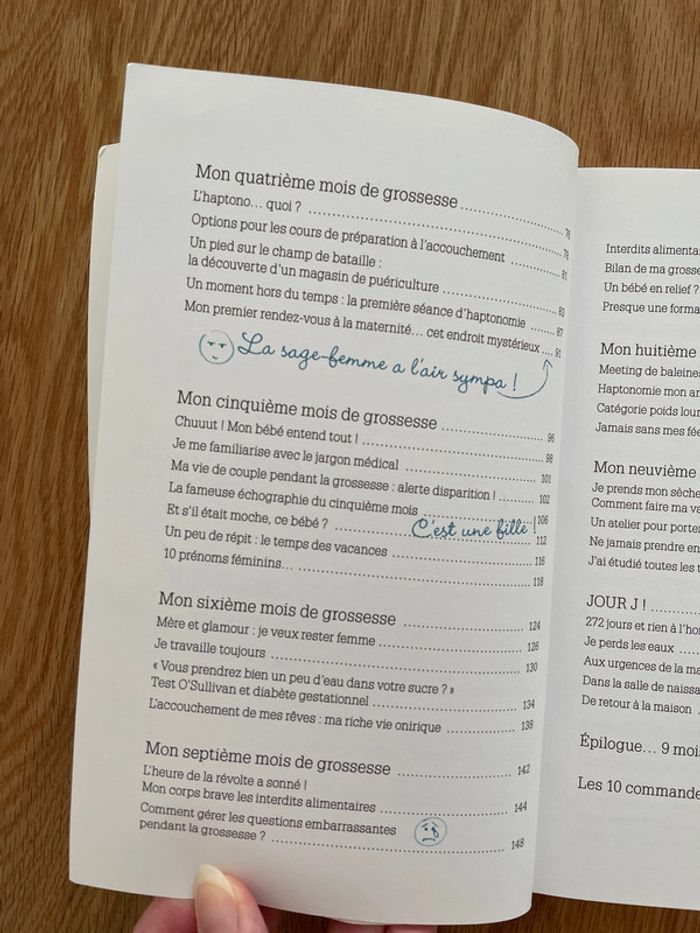 Mon quatrième mois de grossesse .......... 76
L'haptono... quoi ? .......... 78
Options pour les cours de préparation à l'accouchement .......... 81
Un pied sur le champ de bataille :
la découverte d'un magasin de puériculture .......... 83
Un moment hors du temps : la première séance d'haptonomie .......... 87
Mon premier rendez-vous à la maternité... cet endroit mystérieux .... 91
La sage-femme a l'air sympa !
Mon cinquième mois de grossesse .......... 96
Chuuut ! Mon bébé entend tout ! .......... 98
Je me familiarise avec le jargon médical .......... 101
Ma vie de couple pendant la grossesse : alerte disparition ! .......... 102
La fameuse échographie du cinquième mois .......... 106
C'est une fille !
Et s'il était moche, ce bébé ? .......... 112
Un peu de répit : le temps des vacances .......... 116
10 prénoms féminins... .......... 118
Mon sixième mois de grossesse .......... 124
Mère et glamour : je veux rester femme .......... 126
Je travaille toujours .......... 130
« Vous prendrez bien un peu d'eau dans votre sucre ? »
Test O'Sullivan et diabète gestationnel .......... 134
L'accouchement de mes rêves : ma riche vie onirique .......... 138
Mon septième mois de grossesse .......... 142
L'heure de la révolte a sonné !
Mon corps brave les interdits alimentaires .......... 144
Comment gérer les questions embarrassantes
pendant la grossesse ? .......... 148
Interdits
Bilan de ma
Un bébé en relief ?
Presque une
Mon huitième
Meeting de
Haptonomie mon
Catégorie poids
Jamais sans mes
Mon neuvième
Je prends mon
Comment faire ma
Un atelier pour
Ne jamais prendre
J'ai étudié toutes les
JOUR J ! ..........
272 jours et rien à
Je perds les eaux .....
Aux urgences de la
Dans la salle de
De retour à la maison
Épilogue... 9
Les 10